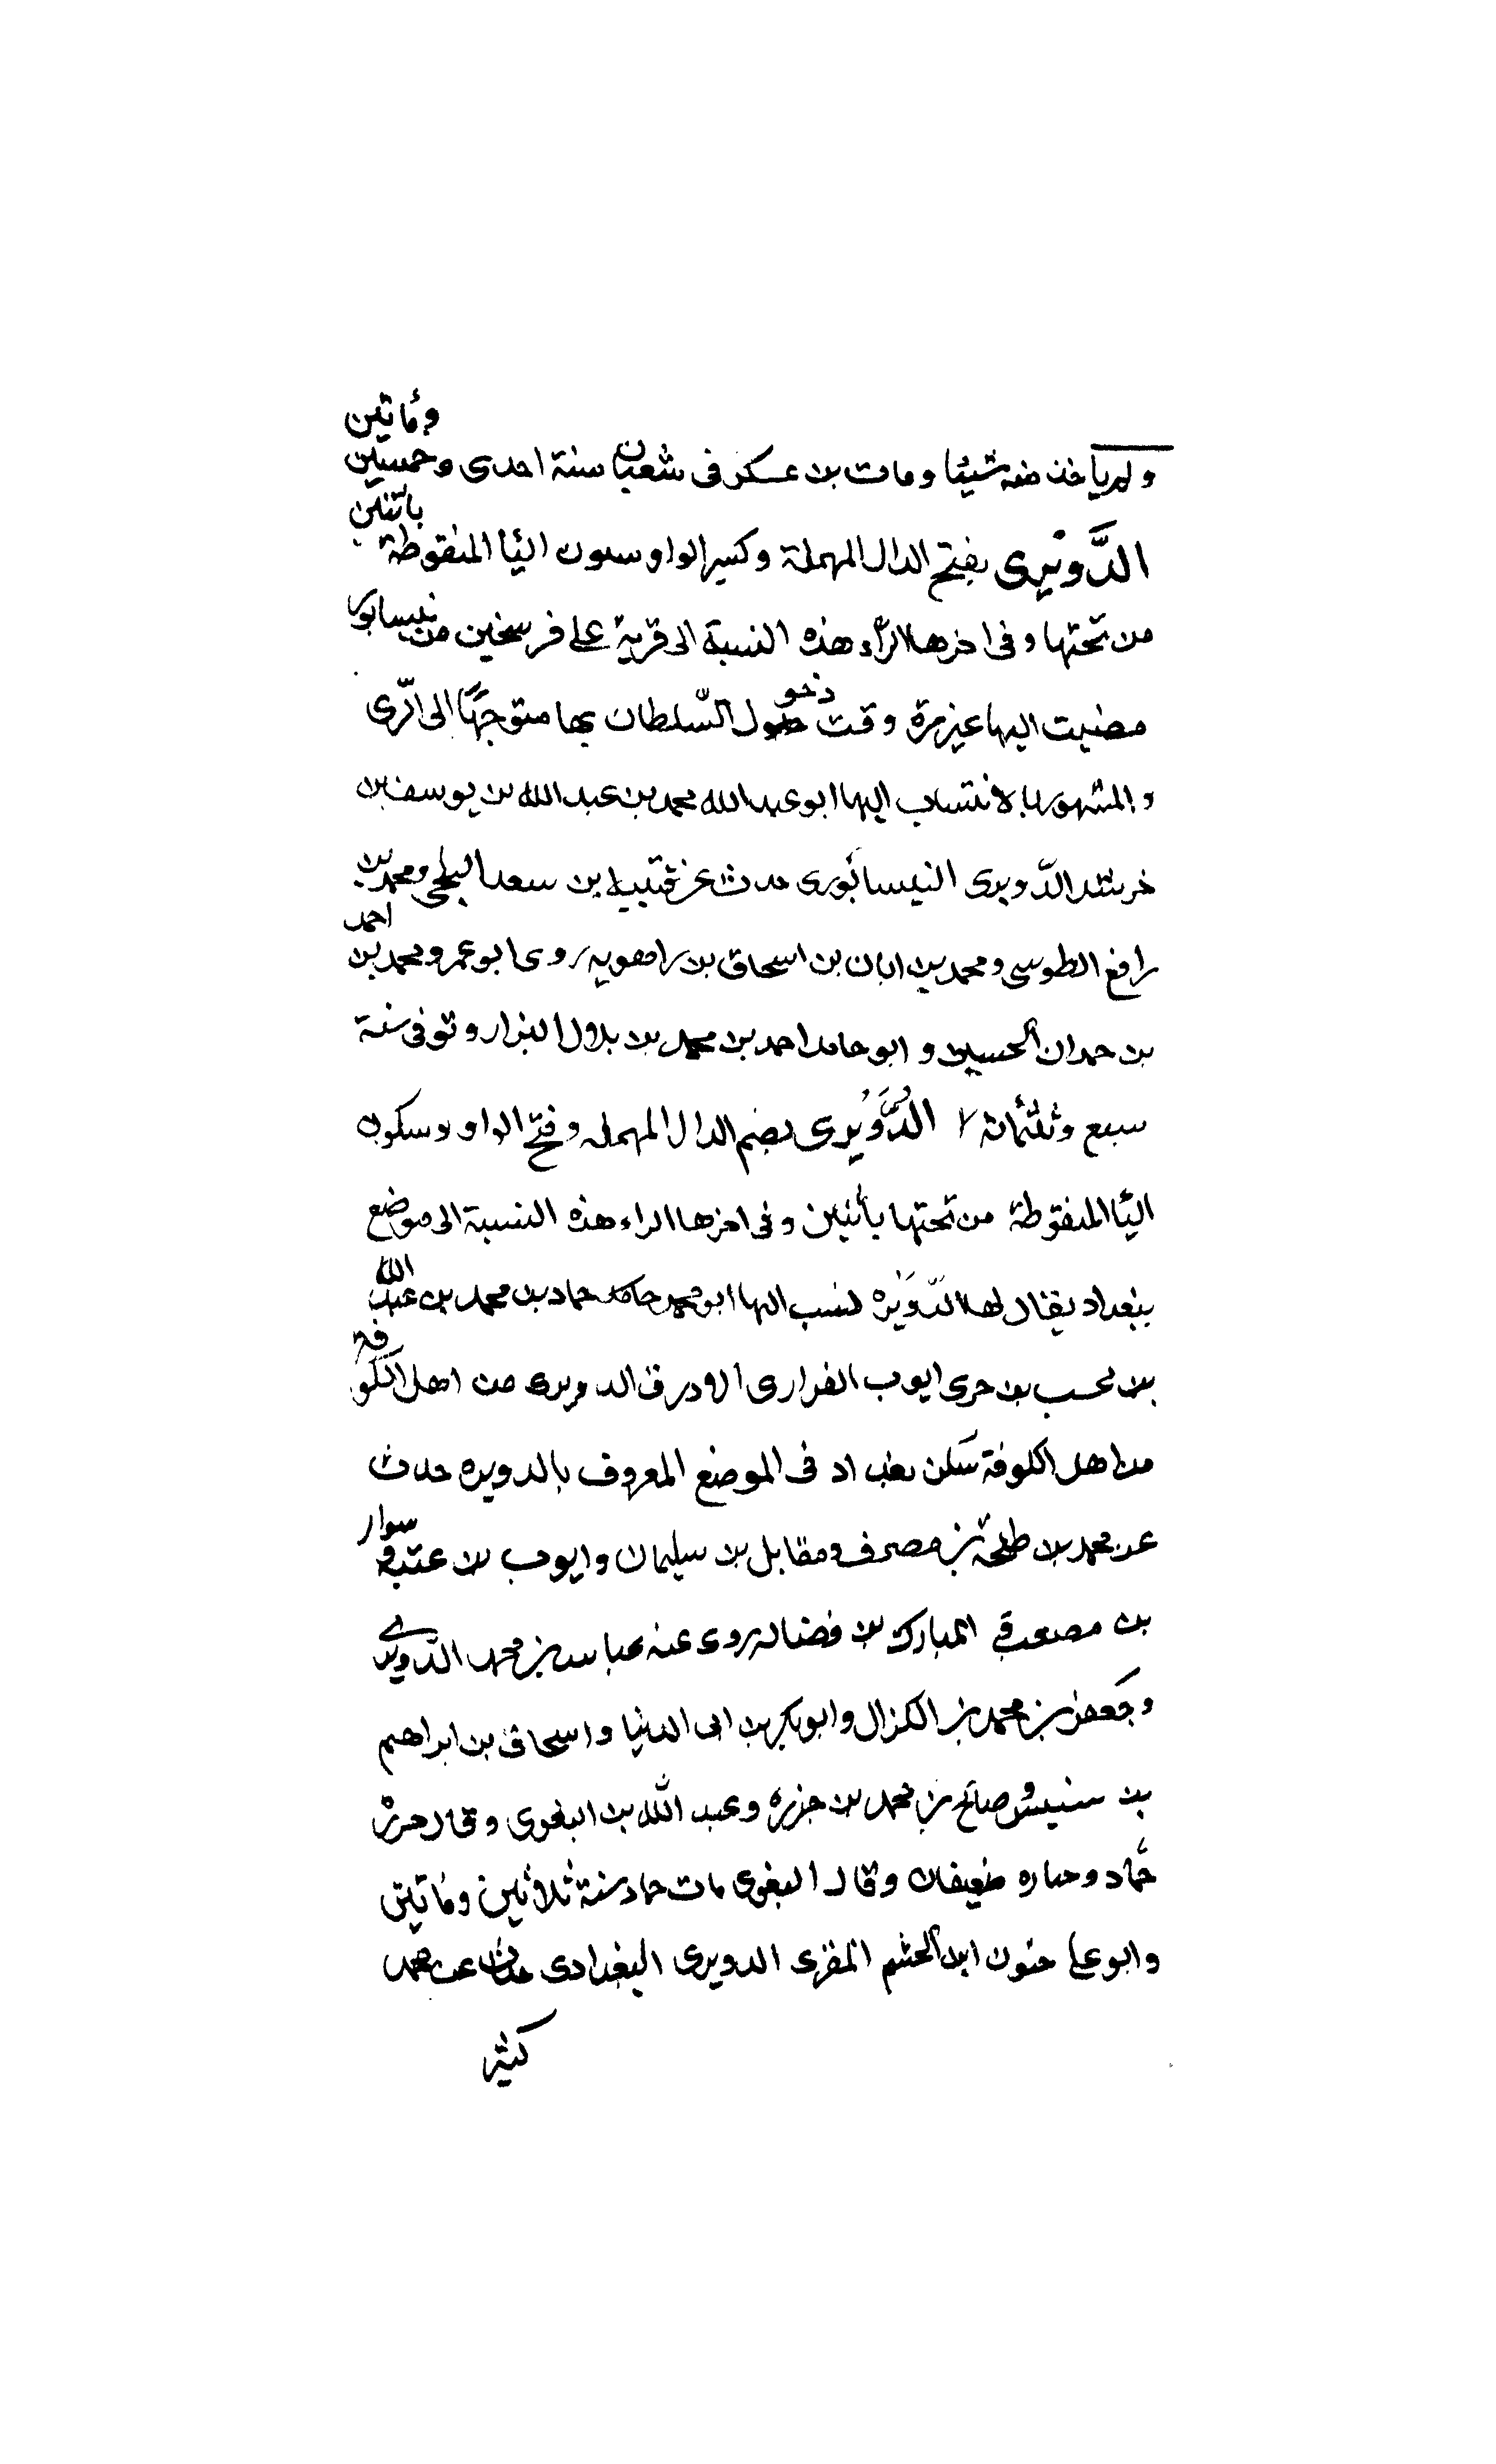 ولم ياخذ منه شيئا ومات بن عسكر فى شعبان سنة احدى وخمسين ومأتين
الدَّوِيْرى بفتح الدال المهملة وكسر الواو وسكون اليا المنقوطة باثنين
من تحتها وفى اخرها الراء هذه النسبة الى قرية على فرسخين من نيسابور
مضيت اليها غير مرة وقت دخول السّلطان بها متوجهًا الى الرّى
والمشهور بالانتساب اليها ابو عبد الله محمد بن عبد الله بن يوسف بن
خرشد الدّويرى النيسابورى حدث عن قتيبة بن سعد البلخى ومحمد بن
رافع الطوسى ومحمد بن ابان بن اسحاق بن راهويه روى ابو عمرو محمد بن احمد
بن حمدان الحسين و ابو حامد احمد بن محمد بن بلال البزار وتوفى سنة
سبع وثلثمائة الدُّوَيْرى بضم الدال المهمله وفتح الواو وسكون
اليا المنقوطة من تحتها بأثنين وفى اخرها الراء هذه النسبة الى موضع
ببغداد يقال لها الدّوَيْره نسب اليها ابو محمد حماد بن محمد بن عبد الله
بن ايوب الفزارى الازرق الدويرى من اهل الكوفة
من اهل الكوفة سكن بغداد فى الموضع المعروف بالدويره حدث
عن محمد بن طلحة بن مصرف ومقاتل بن سليمان وايوب بن عتبة وسوار
بن مصعب و المبارك بن فضاله روى عنه عباس بن محمد الدّويرى
وجعفر بن محمد بن الكزال وابو بكر بن ابى الدنيا واسحاق بن ابراهيم
بن سنين وصالح بن محمد بن جزره وعبد الله بن البغوى وقال جزرة
حماد وحباره ضعيفان وقال البغوى مات حماد سنة ثلاثين ومأتين
وابو على حنون ابن الهيثم المقرى الدويرى البغدادى حدث عن محمد
كثير